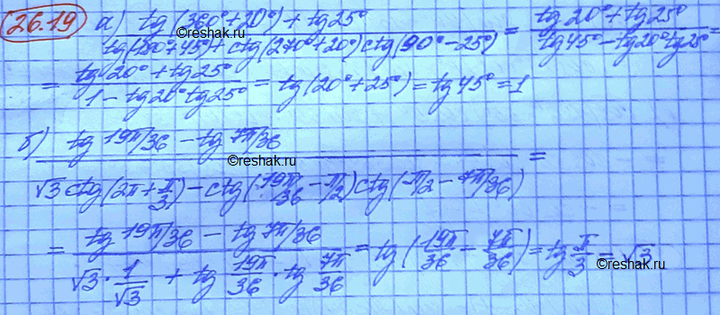 26.19 а) tg(360°+20°) + tg25° / tg(180°+45°) + ctg(270°+20°) ctg(90°-25°) = tg20° + tg25° / tg45° - tg20° tg25° =
= tg20° + tg25° / 1 - tg20° tg25° = tg(20° + 25°) = tg45° = 1
©reshak.ru
б) tg 19π/36 - tg 7π/36 / √3 ctg(2π + π/3) - ctg(19π/36 - π/2) ctg(π/2 - 7π/36) =
©reshak.ru
= tg 19π/36 - tg 7π/36 / √3 · 1/√3 + tg 19π/36 · tg 7π/36 = tg(19π/36 - 7π/36) = tg π/3 = √3
©reshak.ru